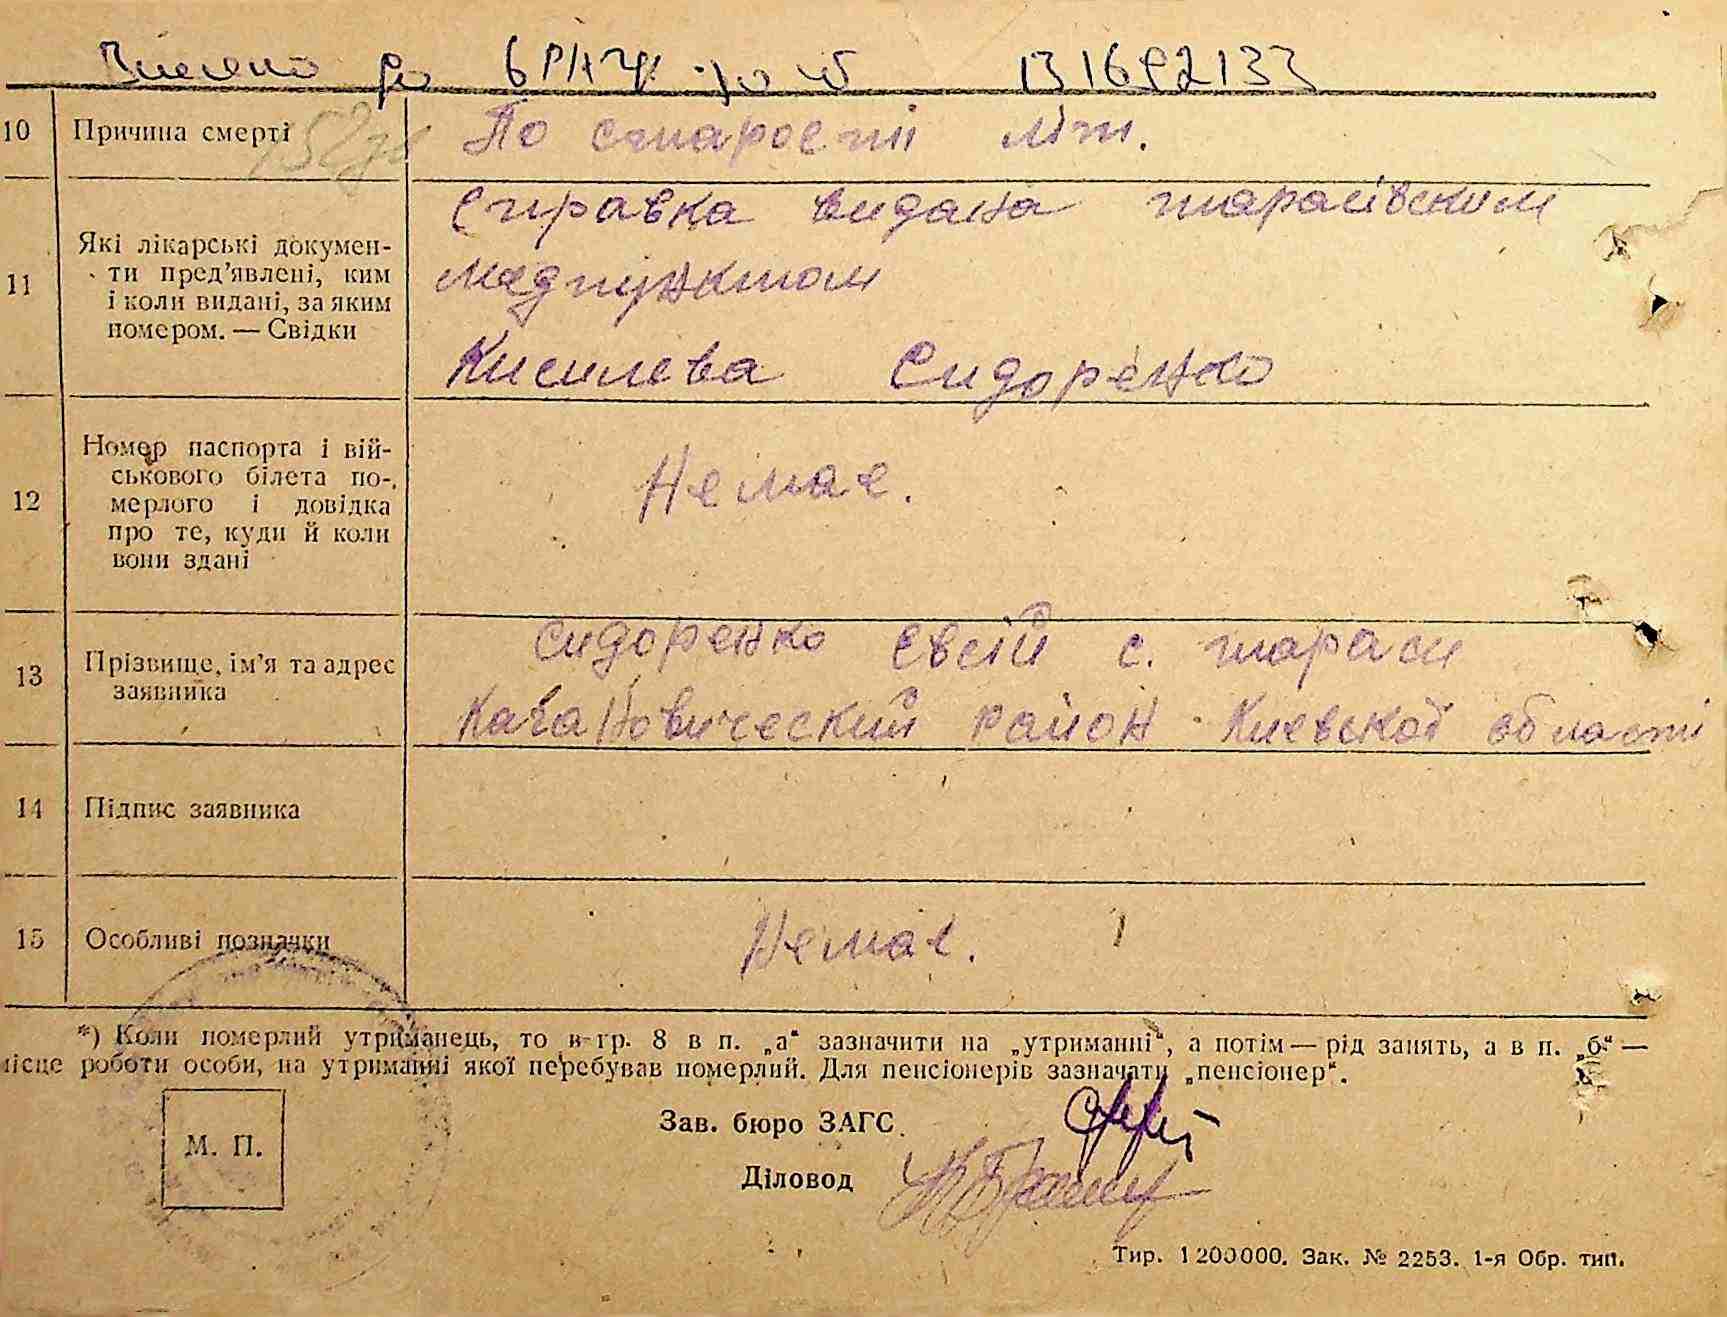 Внесено до
10 Причина смерті По старості літ.
11 Які лікарські докумен-
ти пред'явлені, ким
і коли видані, за яким
номером. — Свідки
Справка видана тарасівским
медпунктом
Киселева Сидоренко
12 Номер паспорта і вій-
ськового білета по-
мерлого і довідка
про те, куди й коли
вони здані
Немае.
13 Прізвище, ім'я та адрес
заявника
Сидоренко Євсій с. тараси
Кагановический район Киевской області
14 Підпис заявника
15 Особливі позначки Немає.
*) Коли померлий утриманець, то в гр. 8 в п. „а“ зазначити на „утриманні“, а потім — рід занять, а в п. „б“ —
місце роботи особи, на утриманні якої перебував померлий. Для пенсіонерів зазначати „пенсіонер“.
М. П.
Зав. бюро ЗАГС
Діловод
Тир. 1200000. Зак. № 2253. 1-я Обр. тип.